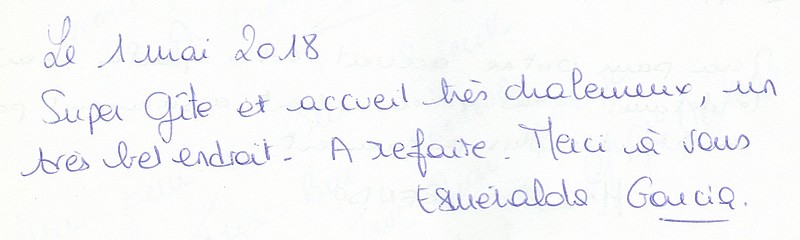 Le 1 mai 2018
Super Gîte et accueil très chaleureux, un
très bel endroit. A refaire. Merci à vous
Esméralda Garcia.